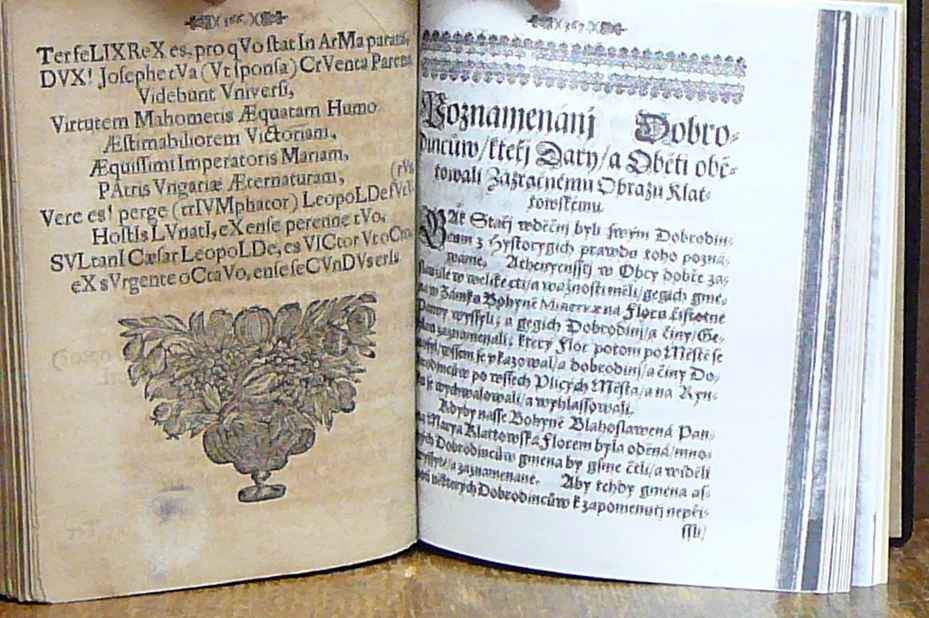 366.
Ter feLIX ReX es. pro qVo ſtat In ArMa parata,
DVX! Joſephe tVa (Vt ſponſa) CrVenta Parens
Videbunt Vniverſi,
Virtutem Mahometis Æquatam Humo
Æſtimabiliorem Victoriam,
Æquiſſimi Imperatoris Mariam,
PAtris Vngariæ Æternaturam,
Vere es! perge (trIVMphator) LeopoLDe
Hoſtis LVnatI, eX enſe perenne tVo,
SVLtanI Cæſar LeopoLDe, es VICtor Vt oCto
eX sVrgente oCtaVo, enſe ſeCVnDVs erIs
367.
Poznamenánj Dobro-
dincůw/ kteřj Dary/ a Oběti obě-
towali Zázračnému Obrazu Klat-
towſkému.
GAk Stařj wděčnj byli ſwým Dobrodin-
cum z Hyſtorygich prawdu toho pozná-
wáme. Athenyenſſtj w Obcy dobře za-
w weliké cti/ a wážnoſti měli/ gegich gmé-
na w Zámku Bohyně Minerwæ na Floru čiſtotně
wyſſyli; a gegich Dobrodinj/ a činy/ Ge-
zaznamenali, který Flor potom po Měſtě ſe
wſſem ſe vkazowal/ a dobrodinj/ a činy Do-
brodincůw po wſſech Vlicých Měſta/ a na Ryn-
ku ſe wychwalowali/ a wyhlaſſowali.
Kdyby naſſe Bohyně Blahoſlawená Pan-
na Marya Klattowſká Florem byla oděná/ mno-
hých Dobrodincůw gména by gſme čtli/ a widěli
a zaznamenané. Aby tehdy gména aſ-
poň některých Dobrodincůw k zapomenutj nepři-
ſſli/